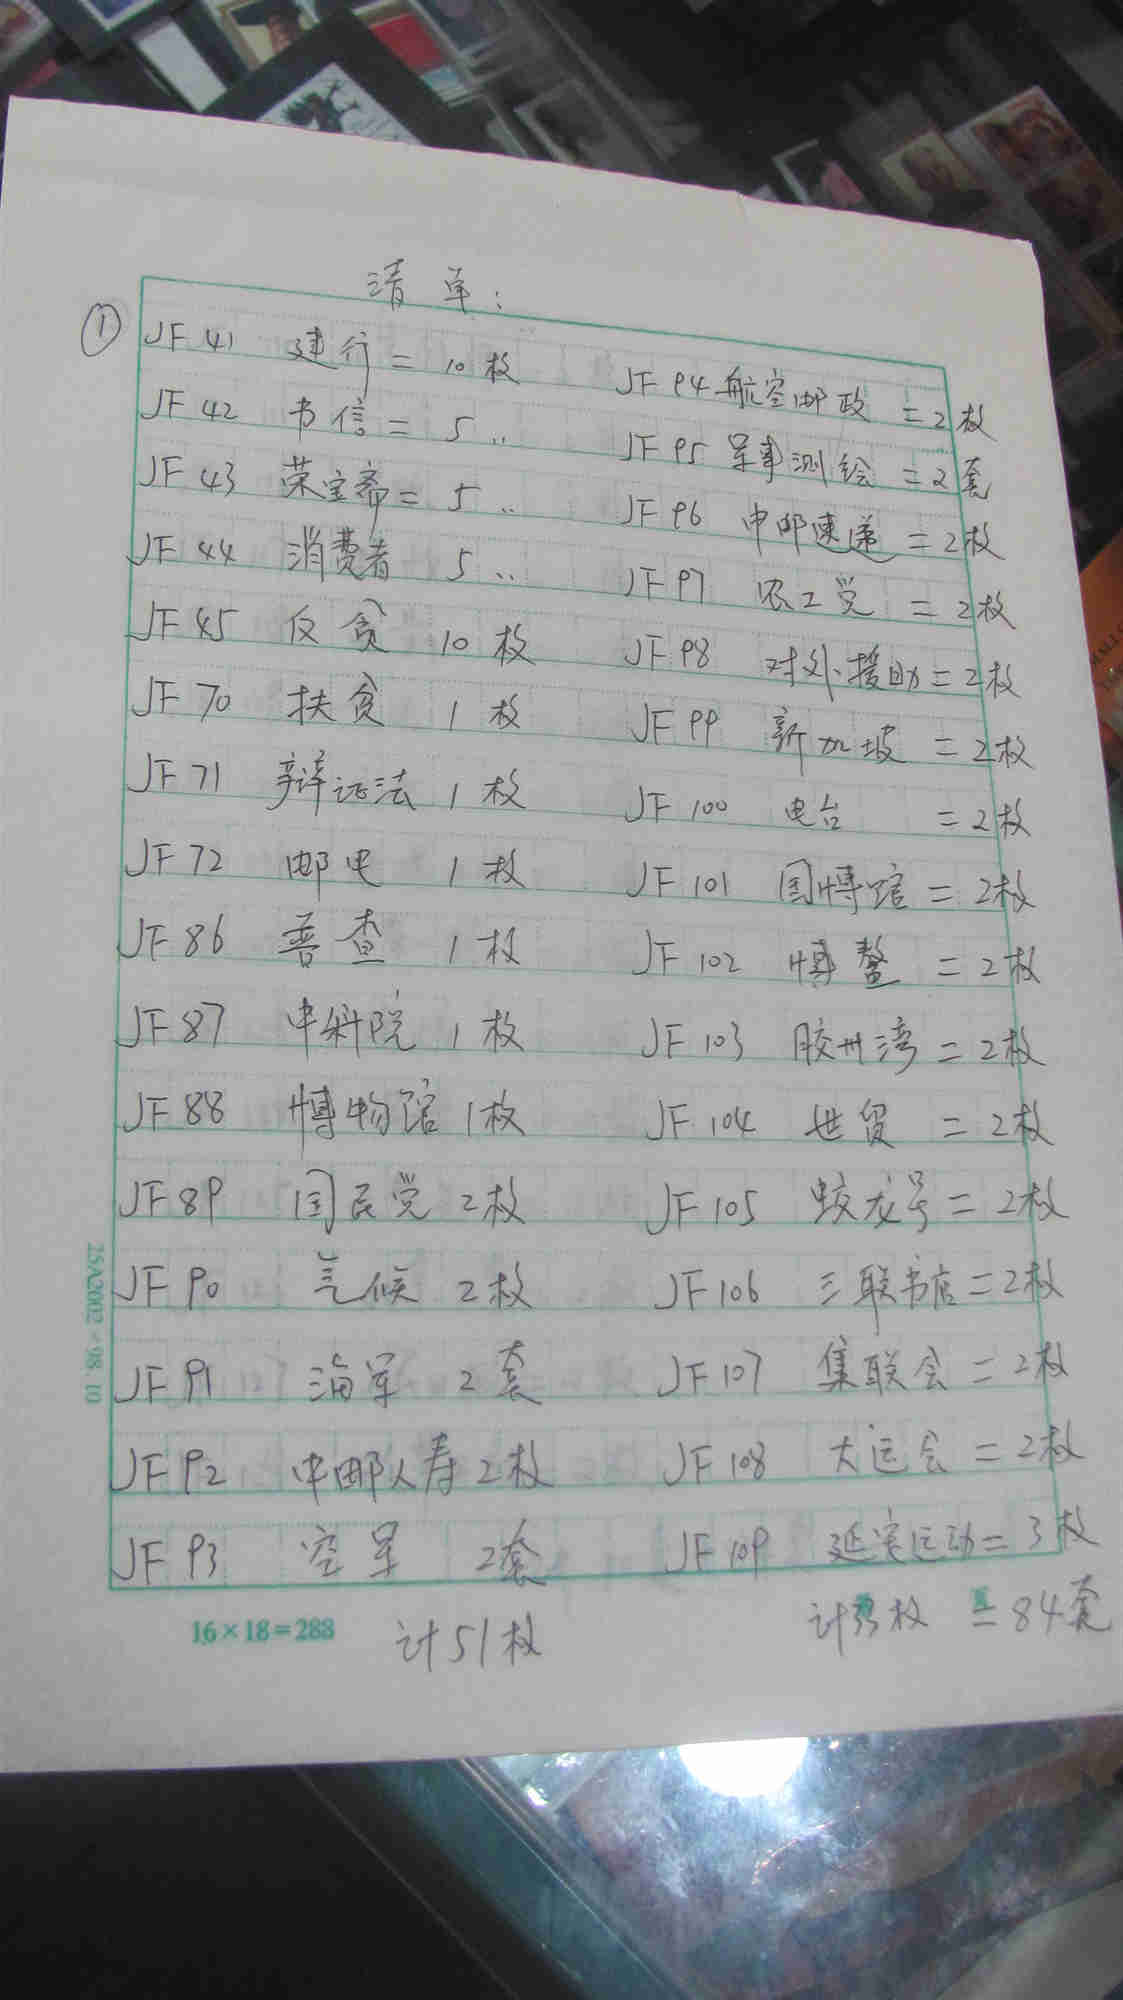 清单:
① JF 41 建行 = 10 枚
JF 42 书信 = 5 〃
JF 43 荣宝斋 = 5 〃
JF 44 消费者 5 〃
JF 45 反贪 10 枚
JF 70 扶贫 1 枚
JF 71 辩证法 1 枚
JF 72 邮电 1 枚
JF 86 普查 1 枚
JF 87 中科院 1 枚
JF 88 博物馆 1枚
JF 89 国民党 2枚
JF 90 气候 2枚
JF 91 海军 2 套
JF 92 中邮人寿 2枚
JF 93 空军 2套
计51枚
JF 94 航空邮政 = 2 枚
JF 95 军事测绘 = 2 套
JF 96 中邮速递 = 2枚
JF 97 农工党 = 2枚
JF 98 对外援助 = 2枚
JF 99 新加坡 = 2枚
JF 100 电台 = 2枚
JF 101 国博馆 = 2枚
JF 102 博鳌 = 2枚
JF 103 胶州湾 = 2枚
JF 104 世贸 = 2枚
JF 105 蛟龙号 = 2枚
JF 106 三联书店 = 2枚
JF 107 集联会 = 2枚
JF 108 大运会 = 2枚
JF 109 延安运动 = 3 枚
计33枚 = 84套
16×18=288
25A2002 <98.10